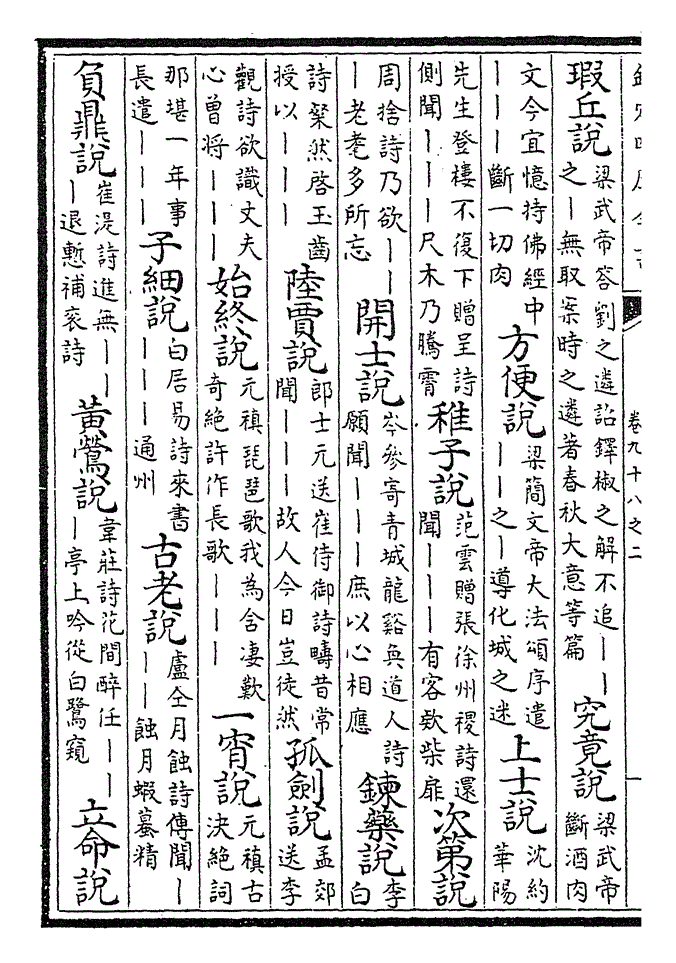 卷九十八之二 一
瑕丘説 梁武帝答劉之遴詔鐸椒之解不追丨丨之丨無取案時之遴著春秋大意等篇 究竟説 梁武帝斷酒肉
文今宜憶持佛經中丨丨丨斷一切肉 方便説 梁簡文帝大法頌序遣丨丨之丨導化城之迷 上士説 沈約華陽
先生登樓不復下贈呈詩側聞丨丨丨尺木乃騰霄 稚子説 范雲贈張徐州稷詩還聞丨丨丨有客欵柴扉 次第説
周捨詩乃欲丨丨丨老耄多所忘 開士説 岑參寄青城龍谿奐道人詩願聞丨丨丨庶以心相應 鍊藥説 李白
詩粲然啓玉齒授以丨丨丨 陸賈説 郎士元送崔侍御詩疇昔常聞丨丨丨故人今日豈徒然 孤劍説 孟郊送李
觀詩欲識丈夫心曾將丨丨丨 始終説 元稹琵琶歌我為含凄歎奇絶許作長歌丨丨丨 一宵説 元稹古決絶詞
那堪一年事長遣丨丨丨 子細説 白居易詩來書丨丨丨通州 古老説 盧仝月蝕詩傳聞丨丨丨蝕月蝦蟇精
負鼎説 崔湜詩進無丨丨丨退慙補衮詩 黃鶯説 韋莊詩花間醉任丨丨丨亭上吟從白鷺窺 立命説